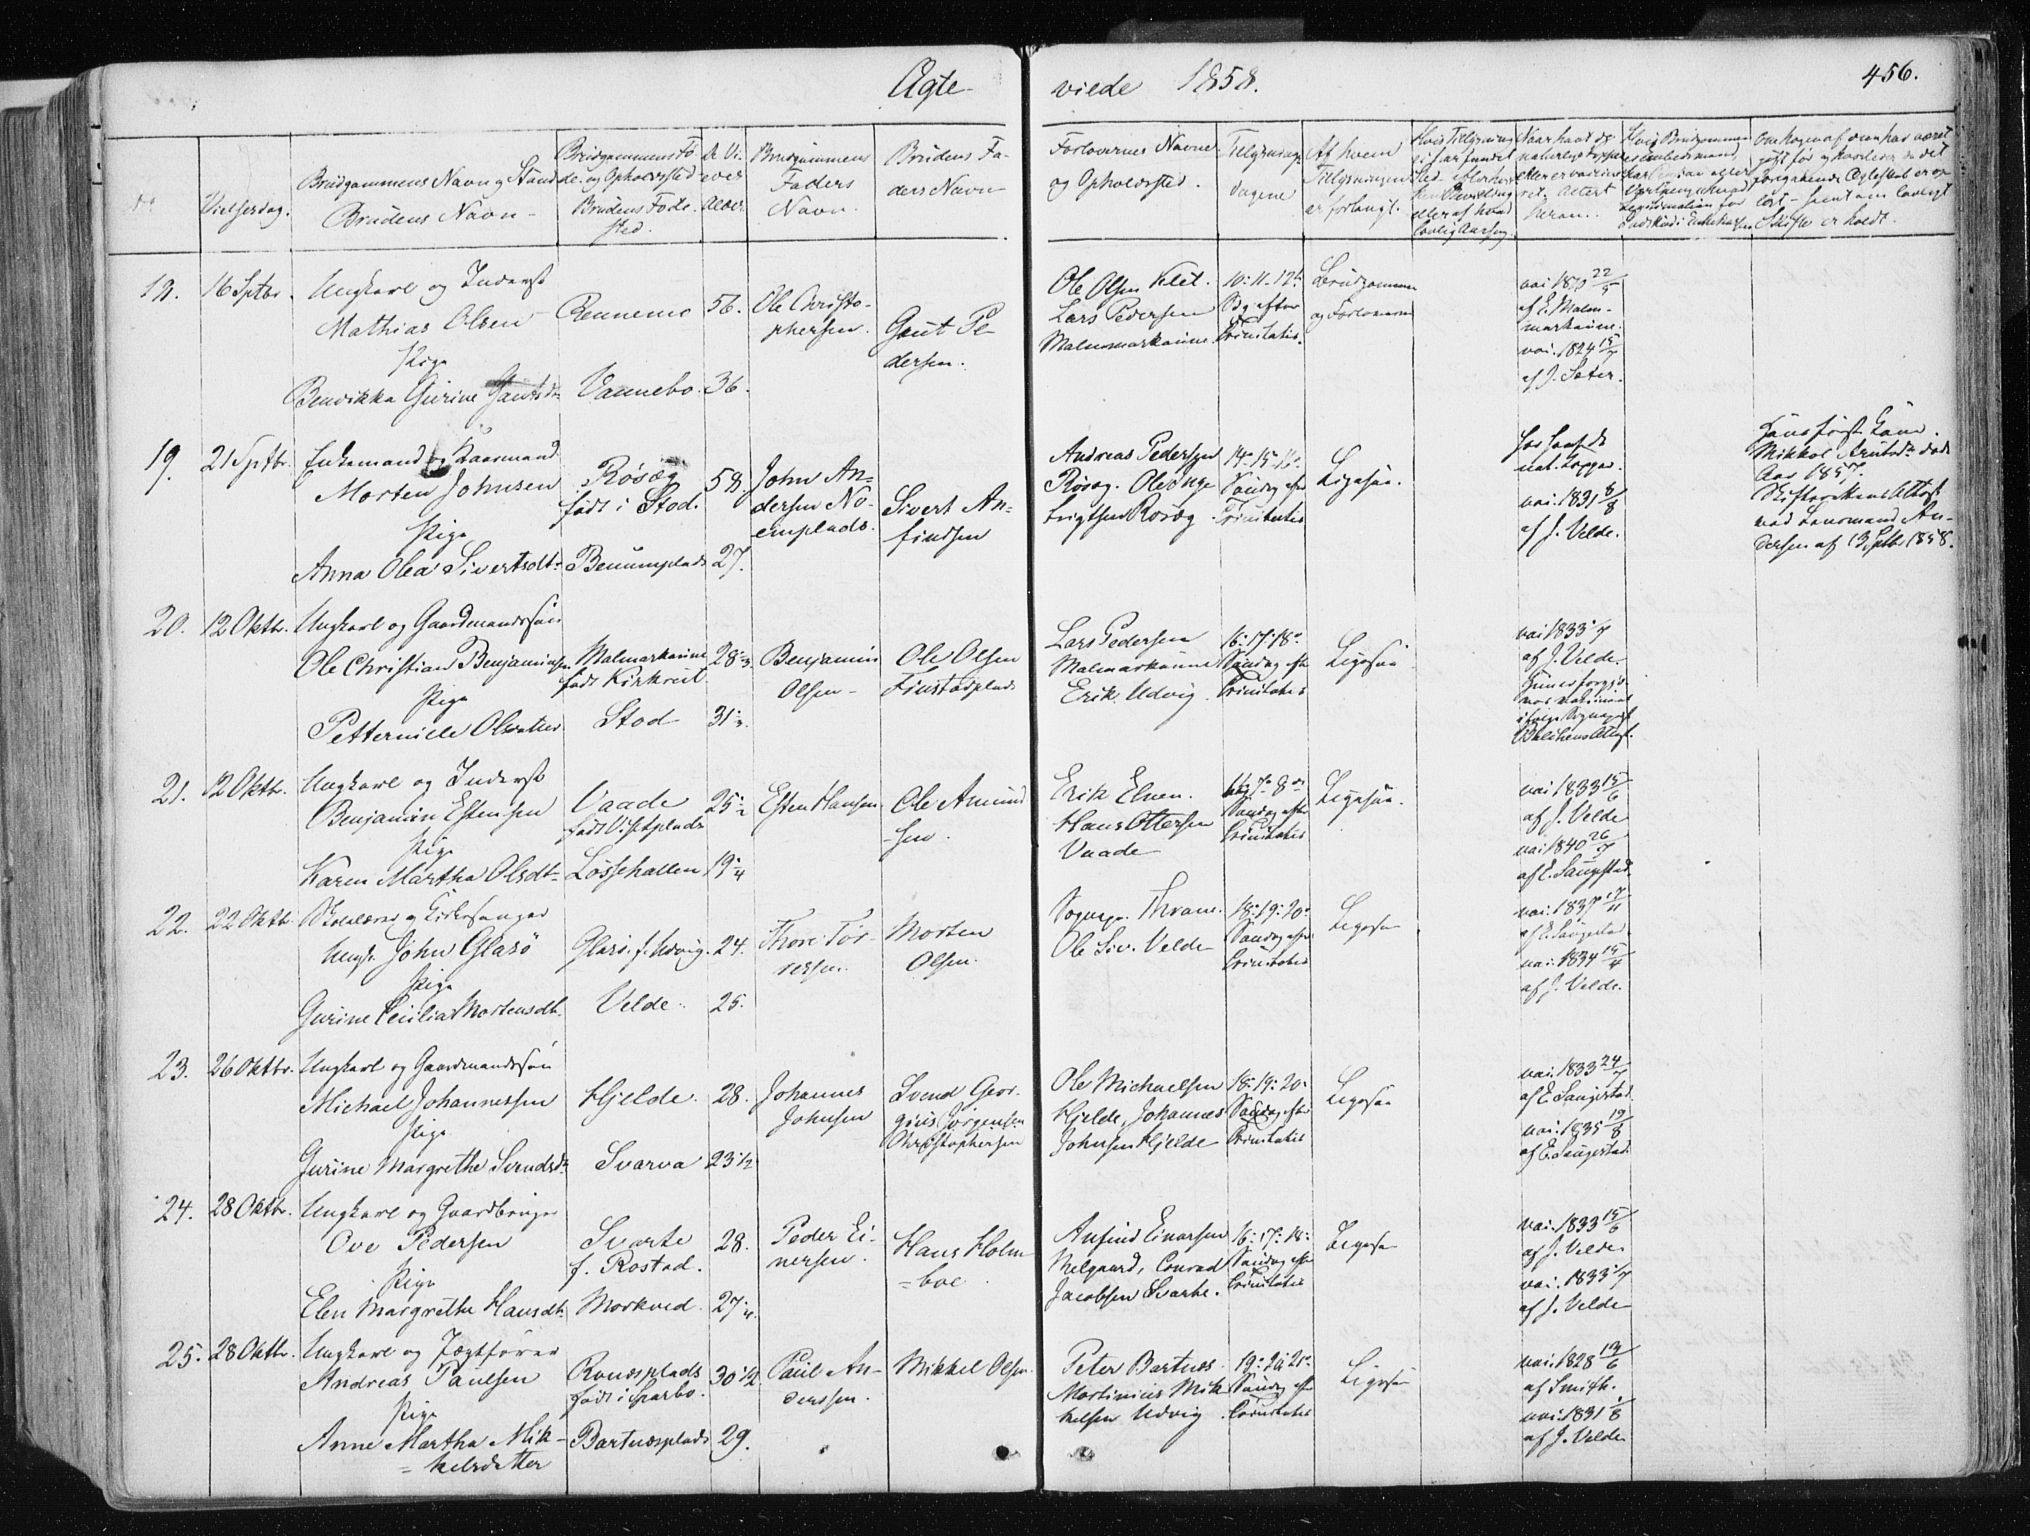 Ægte-
viede 1858.
456.
No
Vielsesdag.
Brudgommens Navn og Stand
Brudens Navn -
Brudgommens Fø-
de- og Opholdssted
Brudens Føde-
sted.
De Vi-
edes
Alder.
Brudgommens
Faders
Navn.
Brudens Fa-
ders Navn
Forlovernes Navne
og Opholdssted.
Tillysnings-
dagene
Af hvem
Tillysningen
er forlangt.
18. 16 Sptbr. Ungkarl og Inderst
Mathias Olsen
Pige
Benvikka Gurine Gautsdr
Rennemo
Vannebo.
56.
36.
Ole Christo-
phersen.
Gaut Pe-
dersen.
Ole Olsen Klet.
Lars Pedersen
Malmmarkaune.
10. 11. 12te
Sdg efter
Trinitatis.
Brudgommen
og Forloverne
vai 1820 22/5
af E. Malm-
markaune.
vai. 1824 15/7
af J. Sæter.
19. 21 Sptbr. Enkemand og Huusmand
Morten Johnsen
Pige
Anna Olea Sivertsdtr
Røsæg
født i Stod.
Benumplads
58.
27.
John An-
dersen No-
emplads.
Sivert An-
findsen
Andreas Pedersen
Røsæg. Ole Inge-
brigtsen Røsæg
14. 15. 16.
Søndag efter
Trinitatis
Ligesaa.
har havt de
nat. Kopper.
vai. 1831 8/8
af J. Velde.
Hans første Kone
Mikkol Arntsdr døde
Aar 1857.
Skifterettens Attest
ved Lensmand An-
dersen af 13 Sptbr 1858.
20. 12 Oktbr. Ungkarl og Gaardmandssøn
Ole Christian Benjaminsen
Pige
Petternille Olsdatter
Malmarkaune
født Kirkreit.
Stod
28 1/3
31 1/2.
Benjamin
Olsen -
Ole Olsen
Finstadplads
Lars Pedersen
Malmarkaune
Erik Udvig.
16. 17. 18.
Søndag efter
Trinitatis
Ligesaa
vai 1833 1/7
af J. Velde.
21. 12 Oktbr. Ungkarl og Inderst
Benjamin Estensen
Pige
Karen Martha Olsdtr
Vaade
født Vistplads
Løssehallen
25 1/2
19 1/4
Esten Hansen
Ole Amund-
sen
Erik Elnen.
Hans Ottersen
Vaade
Søndag efter
Trinitatis
Ligesaa.
vai 1833 15/6
af J. Velde
vai 1840 26/7
af E. Saugstad.
22. 22 Oktbr. Skolelærer og Kirkesanger
Ungk. John Glasø
Pige
Gurine Cecilia Mortensdtr.
Glasø. f. Udvig.
Velde.
24.
25.
Thore Tor-
ressen.
Morten
Olsen.
Sognepr. Thrane.
Ole Siv. Velde
18. 19. 20.
Søndag efter
Trinitatis
Ligesaa
vai. 1837 17/11
af E. Saugestad
vai. 1834 15/4
af J. Velde.
23. 26 Oktbr. Ungkarl og Gaardmandssøn
Michael Johannessen
Pige
Gurine Margrethe Svendsdr
Hjelde.
Svarva
28.
23 1/2
Johannes
Johnsen
Svend Geor-
gius Jørgensen
Christophersen
Ole Michaelsen
Hjelde, Johannes
Johnsen Hjelde
18. 19. 20.
Søndag efter
Trinitatis
Ligesaa
vai. 1833 24/7
af E. Saugestad.
vai. 1835 19/8
af E. Saugestad.
24. 28 Oktbr. Ungkarl og Gaardbruger
Ove Pedersen
Pige
Elen Margrethe Hansdtr.
Svarte
f. Rostad.
Morkved.
28.
27 1/4.
Peder Ei-
nersen.
Hans Holm-
boe.
Anfind Einarsen
Melgaard, Conrad
Jacobsen Svarte.
16. 17. 18.
Søndag efter
Trinitatis
Ligesaa
vai. 1833 15/6
af J. Velde.
vai. 1833 1/7
af J. Velde
25. 28 Oktbr. Ungkarl og Jægtfører
Andreas Paulsen
Pige
Anne Martha Mik-
kelsdatter
født i Sparbo.
Bartnesplads
30 1/2
29.
Paul An-
derssen.
Mikkel Olsen.
Peter Bartnes.
Martinius Mik-
kelsen Udvig.
19. 20. 21.
Søndag efter
Trinitatis
Ligesaa
vai. 1828 19/6
af Smith.
vai. 1831 1/8
af J. Velde